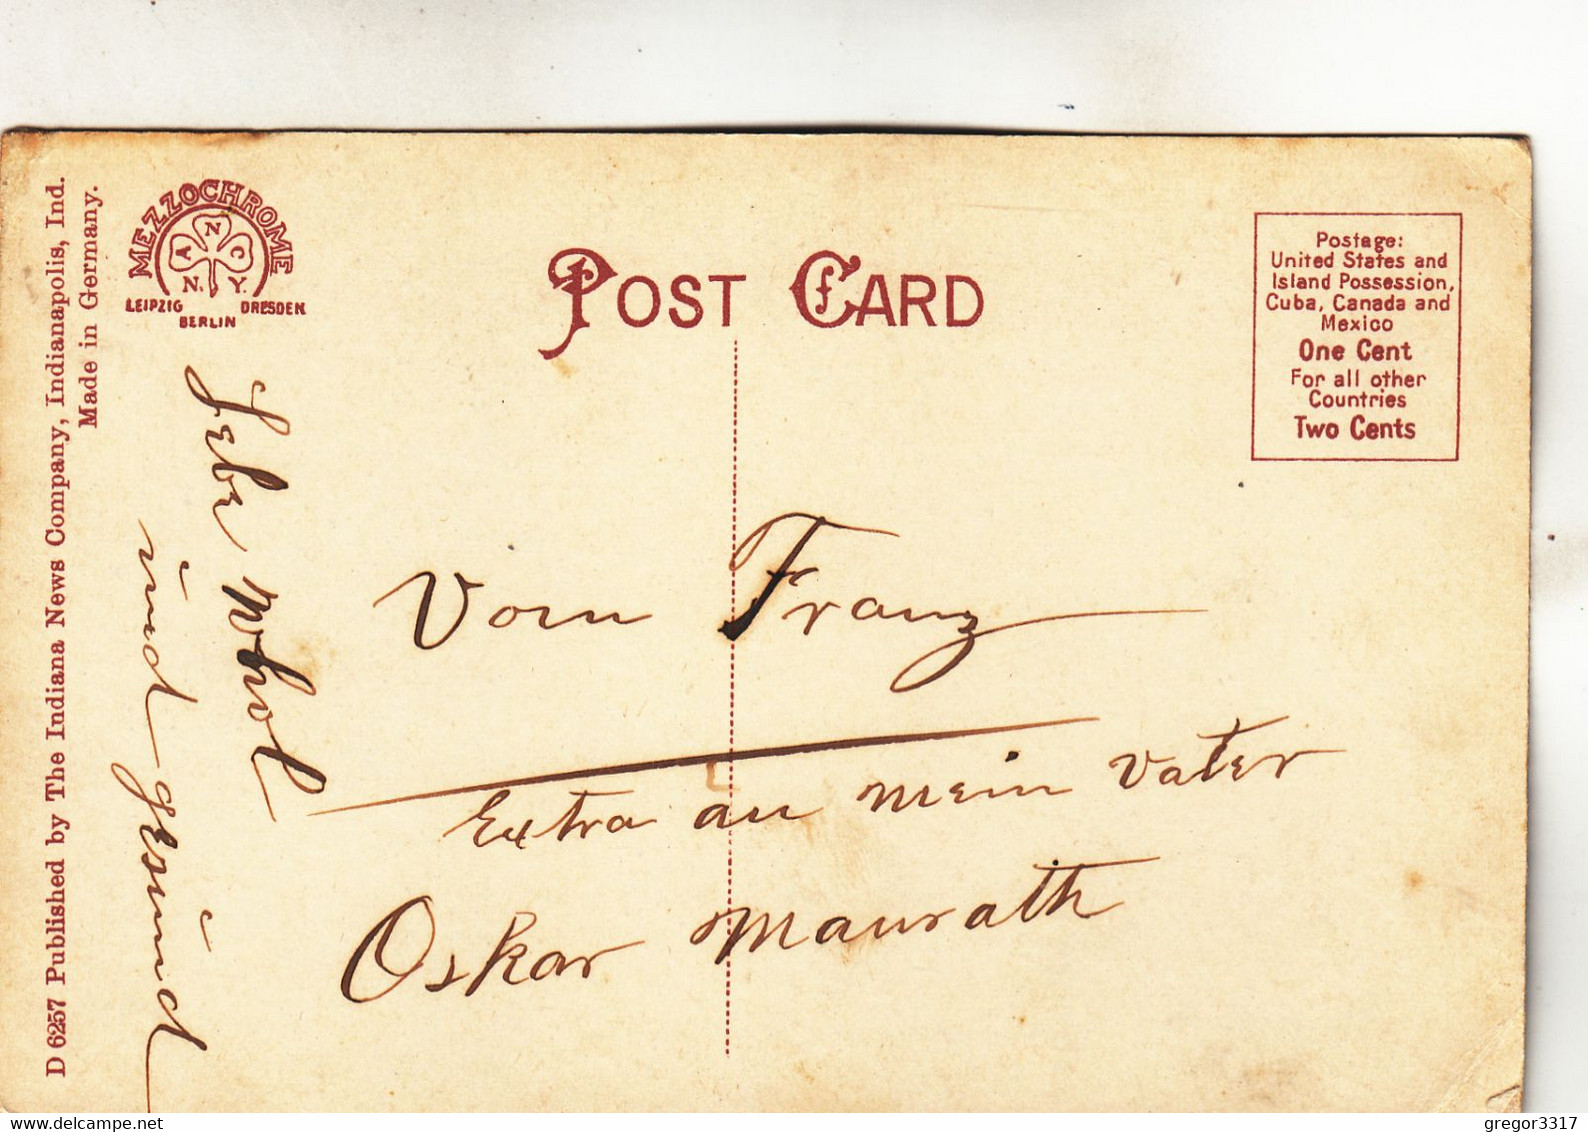 D 6257 Published by The Indiana News Company, Indianapolis, Ind.
Made in Germany.
MEZZOCHROME
A N C
N. Y.
LEIPZIG DRESDEN
BERLIN
POST CARD
Postage:
United States and
Island Possession,
Cuba, Canada and
Mexico
One Cent
For all other
Countries
Two Cents
Lebe Wohol
und gesund
Vom Franz
Extra an mein Vater
Oskar Maurath
www.delcampe.net
gregor3317